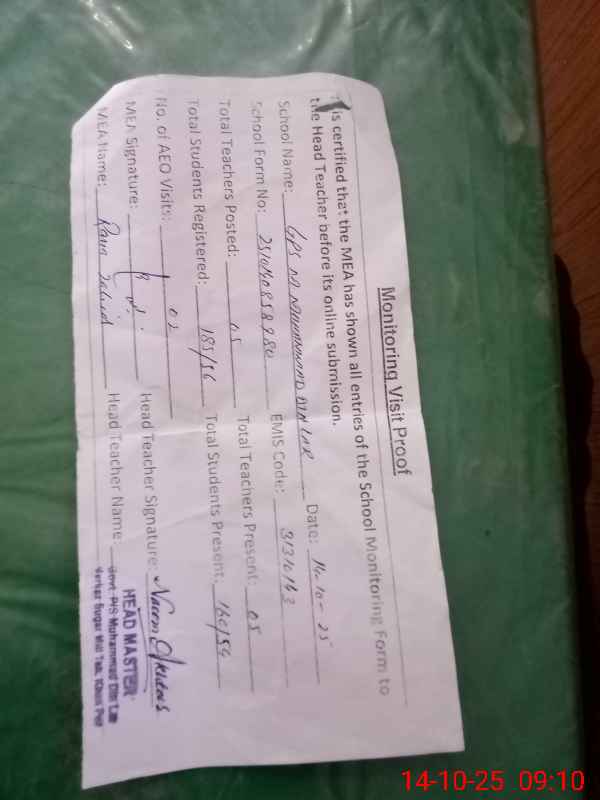 Monitoring Visit Proof
is certified that the MEA has shown all entries of the School Monitoring Form to
the Head Teacher before its online submission.
School Name: GPS MUHAMMAD DIN LAR Date: 14-10-25
School Form No: EMIS Code: 31310163
Total Teachers Posted: 05 Total Teachers Present: 05
Total Students Registered: 185/56 Total Students Present: 160/54
No. of AEO Visits: 02
MEA Signature: Head Teacher Signature: Naeem
MEA Name: Rana Head Teacher Name
HEAD MASTER
Govt: P/S Muhammad Din Lar
Sugar Mill Teh. Khan Pur
14-10-25 09:10